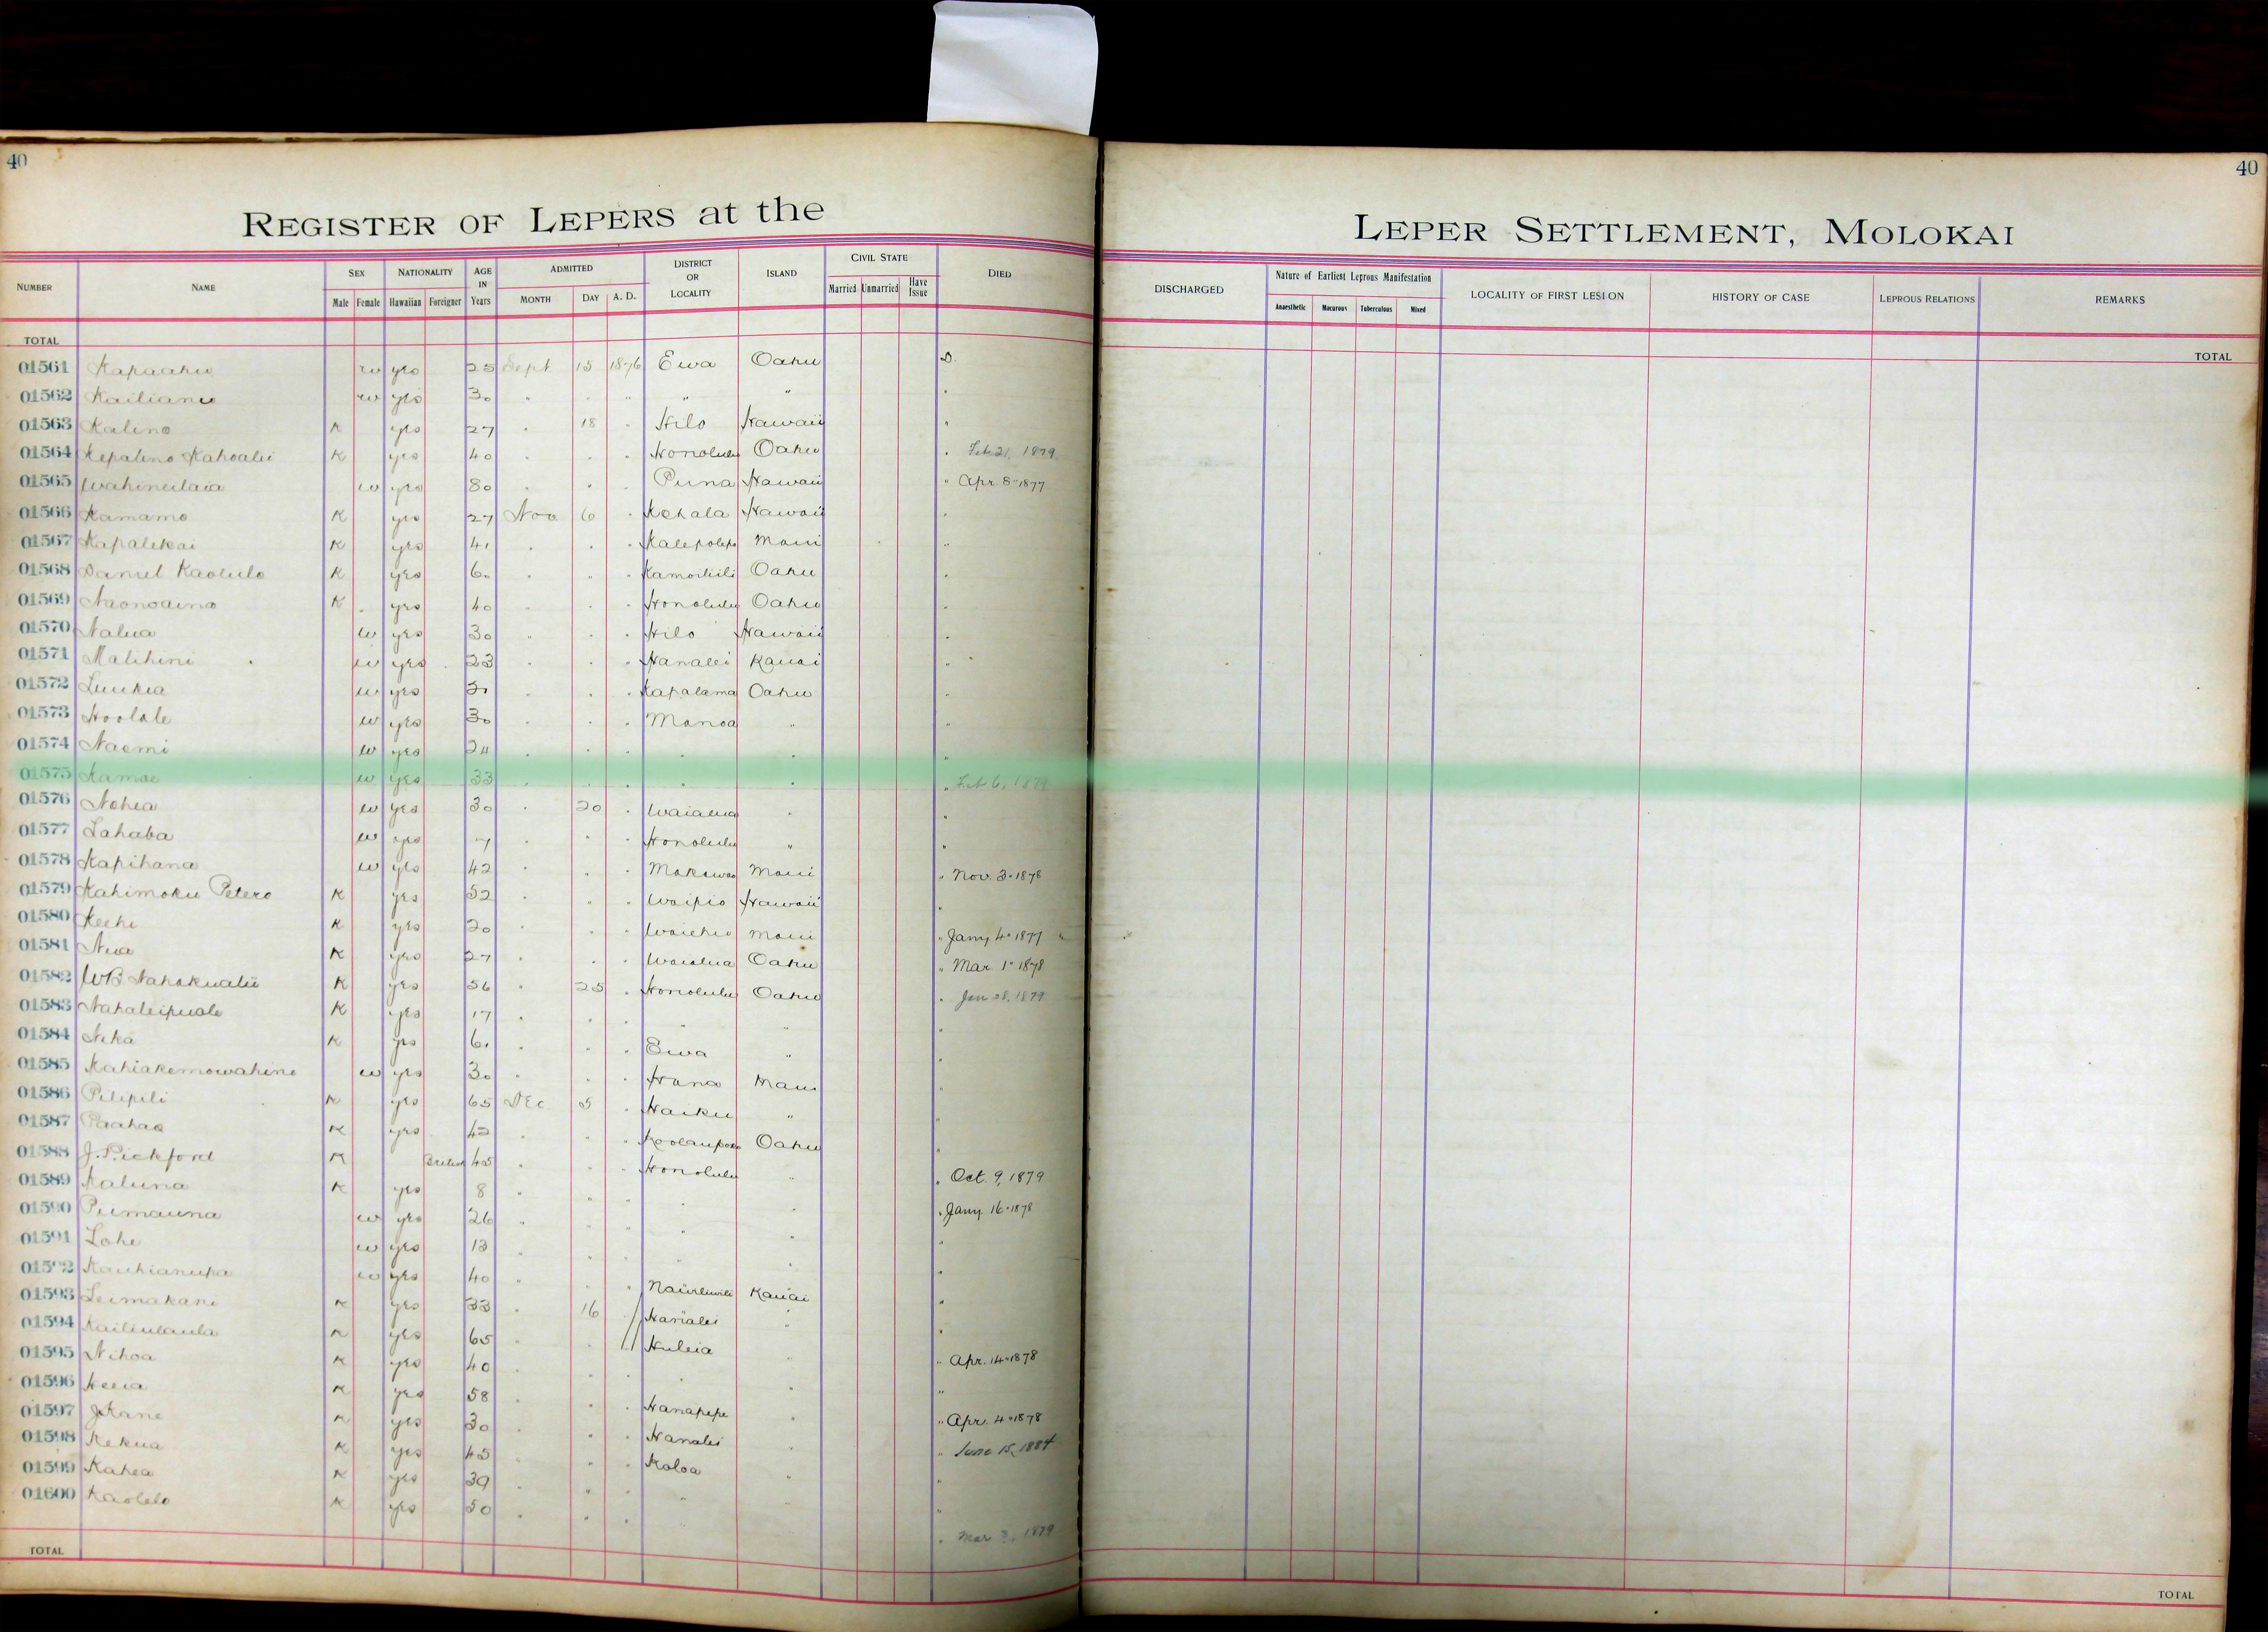 40
40
REGISTER OF LEPERS at the
LEPER SETTLEMENT, MOLOKAI
NUMBER NAME SEX Male Female NATIONALITY Hawaiian Foreigner AGE IN Years ADMITTED MONTH DAY A. D. DISTRICT OR LOCALITY ISLAND CIVIL STATE Married Unmarried Have Issue DIED
DISCHARGED Nature of Earliest Leprous Manifestation Anaesthetic Macurous Tuberculous Mixed LOCALITY OF FIRST LESION HISTORY OF CASE LEPROUS RELATIONS REMARKS
TOTAL
TOTAL
01561 Kapaahu w yes 25 Sept 15 1876 Ewa Oahu D.
01562 Kailianu w yes 30 " " " " " "
01563 Kalino K yes 27 " 18 " Hilo Hawaii "
01564 Kepalino Kahoalii K yes 40 " " " Honolulu Oahu " Feb 21, 1879
01565 Wahineilaia w yes 80 " " " Puna Hawaii " Apr. 8" 1877
01566 Kamamo K yes 27 Nov 6 " Kohala Hawaii "
01567 Kapalekai K yes 41 " " " Kalepolepo Maui "
01568 Daniel Kaolulo K yes 60 " " " Kamoiliili Oahu "
01569 Naonoaina K yes 40 " " " Honolulu Oahu "
01570 Nalua w yes 30 " " " Hilo Hawaii "
01571 Malihini w yes 23 " " " Hanalei Kauai "
01572 Luukia w yes 21 " " " Kapalama Oahu "
01573 Hoolale w yes 30 " " " Manoa " "
01574 Naomi w yes 24 " " " " " "
01575 Kamae w yes 33 " " " " " " Feb 6, 1879
01576 Nohea w yes 30 " 20 " Waialua " "
01577 Lahaba w yes 7 " " " Honolulu " "
01578 Kapihana w yes 42 " " " Makawao Maui " Nov. 3" 1878
01579 Kahimoku Petero K yes 52 " " " Waipio Hawaii "
01580 Keehi K yes 20 " " " Waiehu Maui " Jany 4" 1877 "
01581 Nua K yes 27 " " " Waialua Oahu " Mar. 1" 1878
01582 WB Nahokualii K yes 56 " 25 " Honolulu Oahu " Jan 28, 1879
01583 Nahaleipuale K yes 17 " " " " " "
01584 Nika K yes 61 " " " Ewa " "
01585 Kahiakemowahine w yes 30 " " " Hana Maui "
01586 Pilipili K yes 65 Dec 5 " Haiku " "
01587 Paahao K yes 42 " " " Koolaupoko Oahu "
01588 J. Pickford K British 45 " " " Honolulu " " Oct. 9, 1879
01589 Kaluna K yes 8 " " " " " " Jany. 16" 1878
01590 Puimauna w yes 26 " " " " " "
01591 Lohe w yes 13 " " " " " "
01592 Kauhianupa w yes 40 " " " Nawiliwili Kauai "
01593 Leimakani K yes 33 " 16 " Hanalei " "
01594 Kailiulaula K yes 65 " " " Huleia " " Apr. 14" 1878
01595 Nihoa K yes 40 " " " " " "
01596 Heeia K yes 58 " " " Hanapepe " " Apr. 4" 1878
01597 J Kane K yes 30 " " " Hanalei " " June 15, 1884
01598 Kekua K yes 45 " " " Koloa " "
01599 Kahea K yes 39 " " " " " "
01600 Kaolelo K yes 50 " " " " Mar 3, 1879
TOTAL
TOTAL